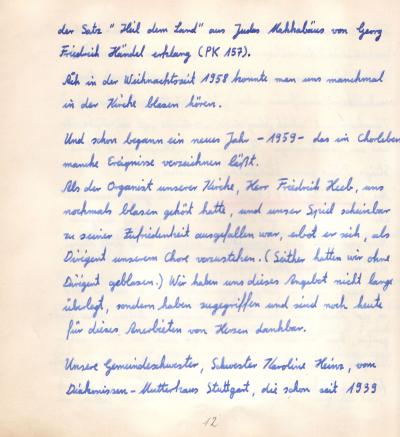 der Satz "Heil dem Land" aus Judas Makkabäus von Georg
Friedrich Händel erklang (PK 157).
Auch in der Weihnachtszeit 1958 konnte man uns manchmal
in der Kirche blasen hören.
Und schon begann ein neues Jahr - 1959 - das im Chorleben
manche Ereignisse verzeichnen läßt.
Als der Organist unserer Kirche, Herr Friedrich Heeb, uns
nochmals blasen gehört hatte, und unser Spiel scheinbar
zu seiner Zufriedenheit ausgefallen war, erbot er sich, als
Dirigent unserem Chore vorzustehen. (Seither hatten wir ohne
Dirigent geblasen.) Wir haben uns dieses Angebot nicht lange
überlegt, sondern haben zugegriffen und sind noch heute
für dieses Anerbieten von Herzen dankbar.
Unsere Gemeindeschwester, Schwester Karoline Heinz, vom
Diakonissen-Mutterhaus Stuttgart, die schon seit 1939
12